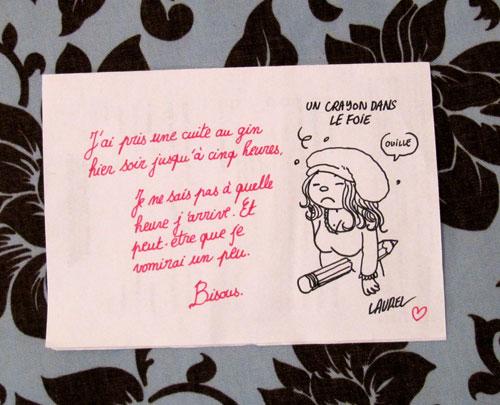 J'ai pris une cuite au gin
hier soir jusqu'à cinq heures.
Je ne sais pas à quelle
heure j'arrive. Et
peut-être que je
vomirai un peu.
Bisous.
UN CRAYON DANS
LE FOIE
OUILLE
LAUREL